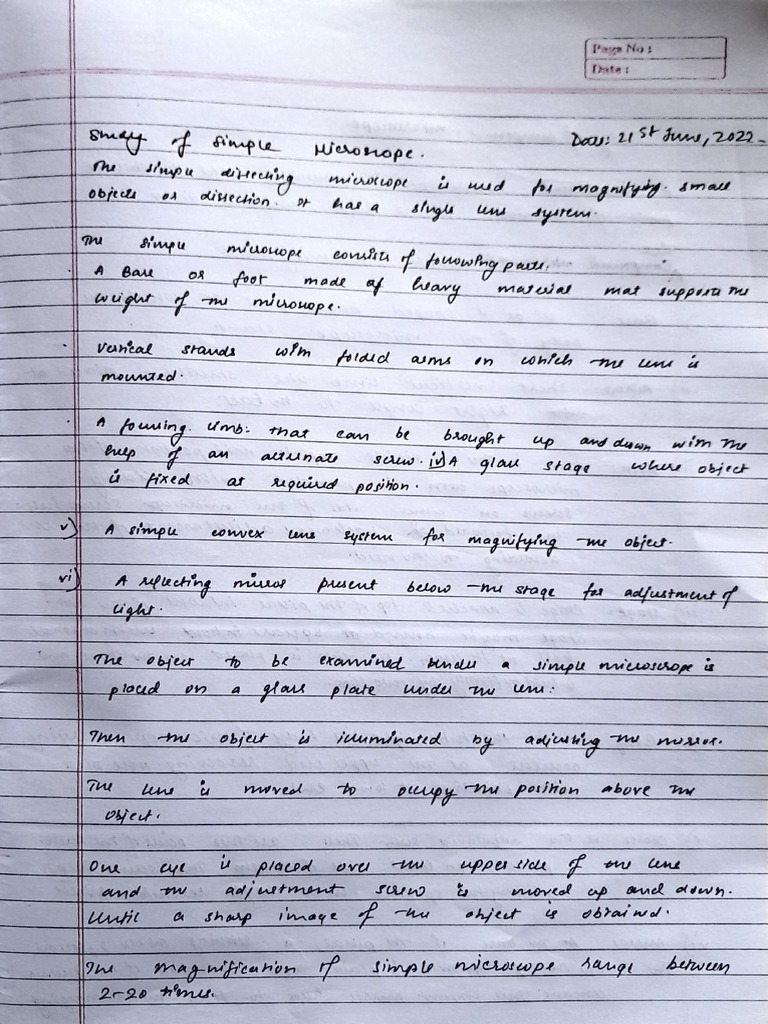 Page No :
Date :
Date: 21st June, 2022.
Study of Simple Microscope.
The simple dissecting microscope is used for magnifying small
objects or dissection. It has a single lens system.
The simple microscope consists of following parts.
A Base or foot made of heavy material that supports the
weight of the microscope.
Vertical stands with folded arms on which the lens is
mounted.
A focusing limb: that can be brought up and down with the
help of an alternate screw. iv) A glass stage where object
is fixed at required position.
v) A simple convex lens system for magnifying the object.
vi) A reflecting mirror present below the stage for adjustment of
light.
The object to be examined under a simple microscope is
placed on a glass plate under the lens.
Then the object is illuminated by adjusting the mirror.
The lens is moved to occupy the position above the
object.
One eye is placed over the upper side of the lens
and the adjustment screw is moved up and down.
Until a sharp image of the object is obtained.
The magnification of simple microscope range between
2-20 times.